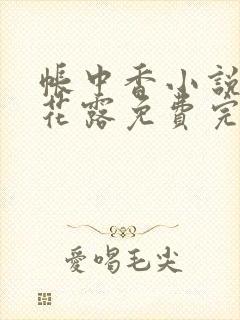 帳中香小說
花露免費完
愛喝毛尖